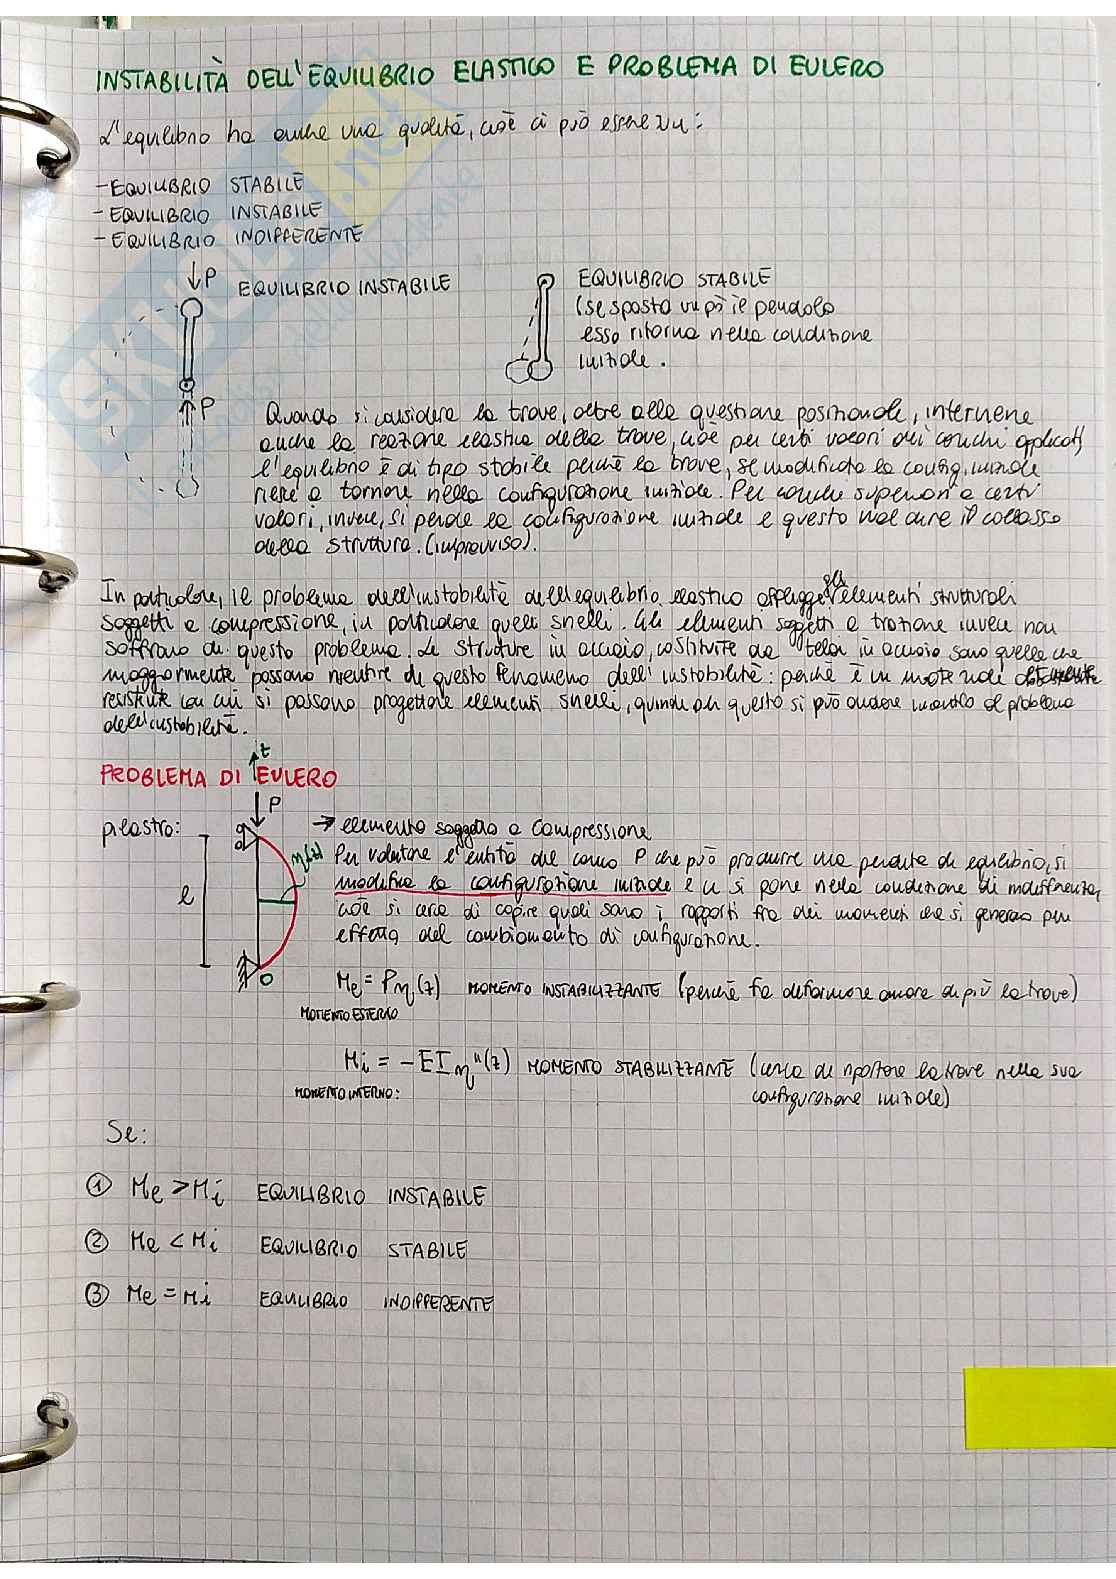 INSTABILITÀ DELL'EQUILIBRIO ELASTICO E PROBLEMA DI EULERO
L'equilibrio ha anche una qualità, cioè ci può essere un:
-EQUILIBRIO STABILE
-EQUILIBRIO INSTABILE
-EQUILIBRIO INDIFFERENTE
P EQUILIBRIO INSTABILE
EQUILIBRIO STABILE
(se sposto un pò il pendolo
esso ritorna nella condizione
iniziale.
P
Quando si considera la trave, oltre alla questione posizionale, interviene
anche la reazione elastica della trave, cioè per certi valori dei carichi applicati
l'equilibrio è di tipo stabile perchè la trave, se modificata la config. iniziale
riesce a tornare nella configurazione iniziale. Per carichi superiori a certi
valori, invece, si perde la configurazione iniziale e questo vuol dire il collasso
della struttura. (improvviso).
In particolare, il problema dell'instabilità dell'equilibrio elastico affligge gli elementi strutturali
soggetti a compressione, in particolare quelli snelli. Gli elementi soggetti a trazione invece non
soffrono di questo problema. Le strutture in acciaio, costituite da telai in acciaio sono quelle che
maggiormente possono risentire di questo fenomeno dell'instabilità: perchè è un materiale
resistente con cui si possono progettare elementi snelli, quindi per questo si può andare incontro al problema
dell'instabilità.
PROBLEMA DI EULERO
z
P
pilastro:
→ elemento soggetto a compressione
η(z)
l
O
Per valutare l'entità del carico P che può produrre una perdita di equilibrio, si
modifica la configurazione iniziale e ci si pone nella condizione di indifferenza,
cioè si cerca di capire quali sono i rapporti fra dei momenti che si generano per
effetto del cambiamento di configurazione.
Me = Pη(z) MOMENTO INSTABILIZZANTE (perchè fa deformare ancora di più la trave)
MOMENTO ESTERNO
Mi = -EIη''(z) MOMENTO STABILIZZANTE (cerca di riportare la trave nella sua
MOMENTO INTERNO:
configurazione iniziale)
Se:
① Me > Mi EQUILIBRIO INSTABILE
② Me < Mi EQUILIBRIO STABILE
③ Me = Mi EQUILIBRIO INDIFFERENTE